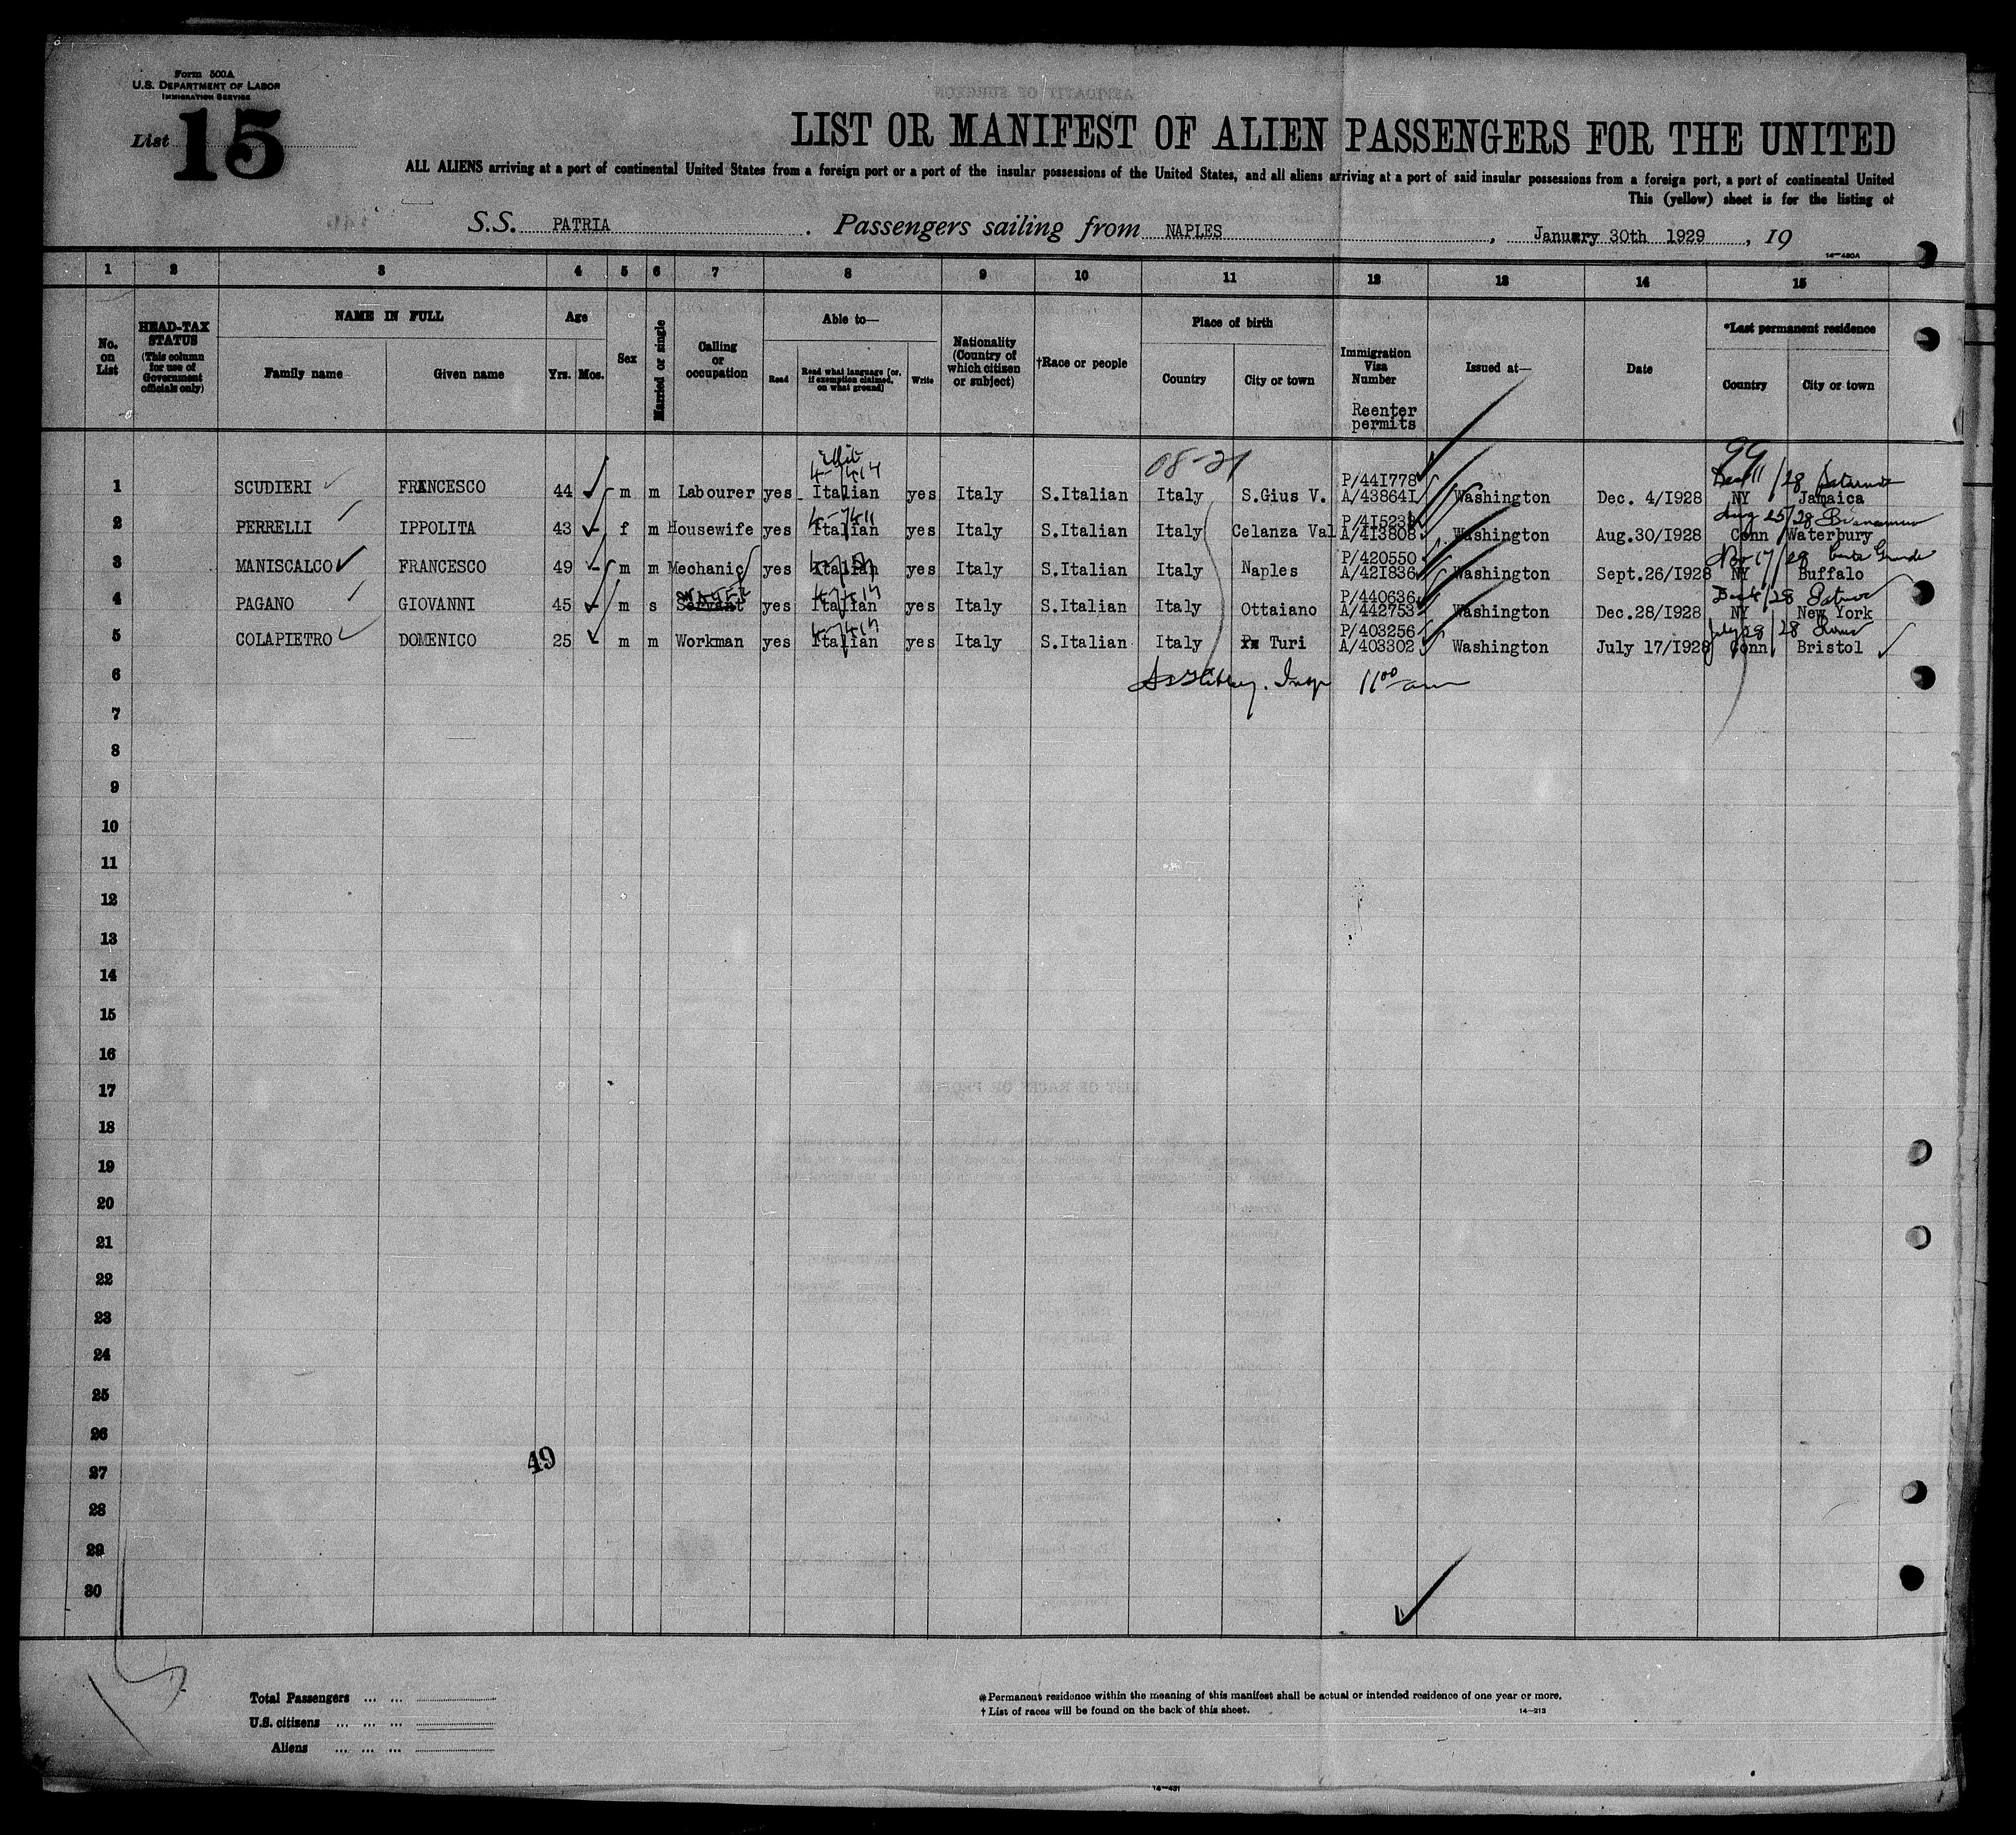 Form 500A
U.S. DEPARTMENT OF LABOR
IMMIGRATION SERVICE
List 15
LIST OR MANIFEST OF ALIEN PASSENGERS FOR THE UNITED
ALL ALIENS arriving at a port of continental United States from a foreign port or a port of the insular possessions of the United States, and all aliens arriving at a port of said insular possessions from a foreign port, a port of continental United
This (yellow) sheet is for the listing of
S.S. PATRIA. Passengers sailing from NAPLES, January 30th 1929, 19
14-480A
1 2 3 4 5 6 7 8 9 10 11 12 13 14 15
No. on List
HEAD-TAX STATUS
(This column for use of Government officials only)
NAME IN FULL
Family name Given name
Age
Yrs. Mos.
Sex
Married or single
Calling or occupation
Able to—
Read Read what language (or, if exemption claimed, on what ground) Write
Nationality (Country of which citizen or subject)
†Race or people
Place of birth
Country City or town
Immigration Visa Number
Reenter permits
Issued at—
Date
*Last permanent residence
Country City or town
08-21 99
1 SCUDIERI FRANCESCO 44 m m Labourer yes Italian yes Italy S.Italian Italy S.Gius V. P/44I778 A/43864I Washington Dec. 4/I928 NY Jamaica
2 PERRELLI IPPOLITA 43 f m Housewife yes Italian yes Italy S.Italian Italy Celanza Val A/4I3808 Washington Aug.30/I928 Conn Waterbury
3 MANISCALCO FRANCESCO 49 m m Mechanic yes Italian yes Italy S.Italian Italy Naples P/420550 A/42I836 Washington Sept.26/I928 NY Buffalo
4 PAGANO GIOVANNI 45 m s Servant yes Italian yes Italy S.Italian Italy Ottaiano P/440636 A/442753 Washington Dec.28/I928 NY New York
5 COLAPIETRO DOMENICO 25 m m Workman yes Italian yes Italy S.Italian Italy Turi P/403256 A/403302 Washington July 17/I928 Conn Bristol
6 Insp 11 00 am
7
8
9
10
11
12
13
14
15
16
17
18
19
20
21
22
23
24
25
26
27
28
29
30
49
Total Passengers ... ...
U.S. citizens ... ... ...
Aliens ... ... ...
*Permanent residence within the meaning of this manifest shall be actual or intended residence of one year or more.
† List of races will be found on the back of this sheet.
14-213
14-431